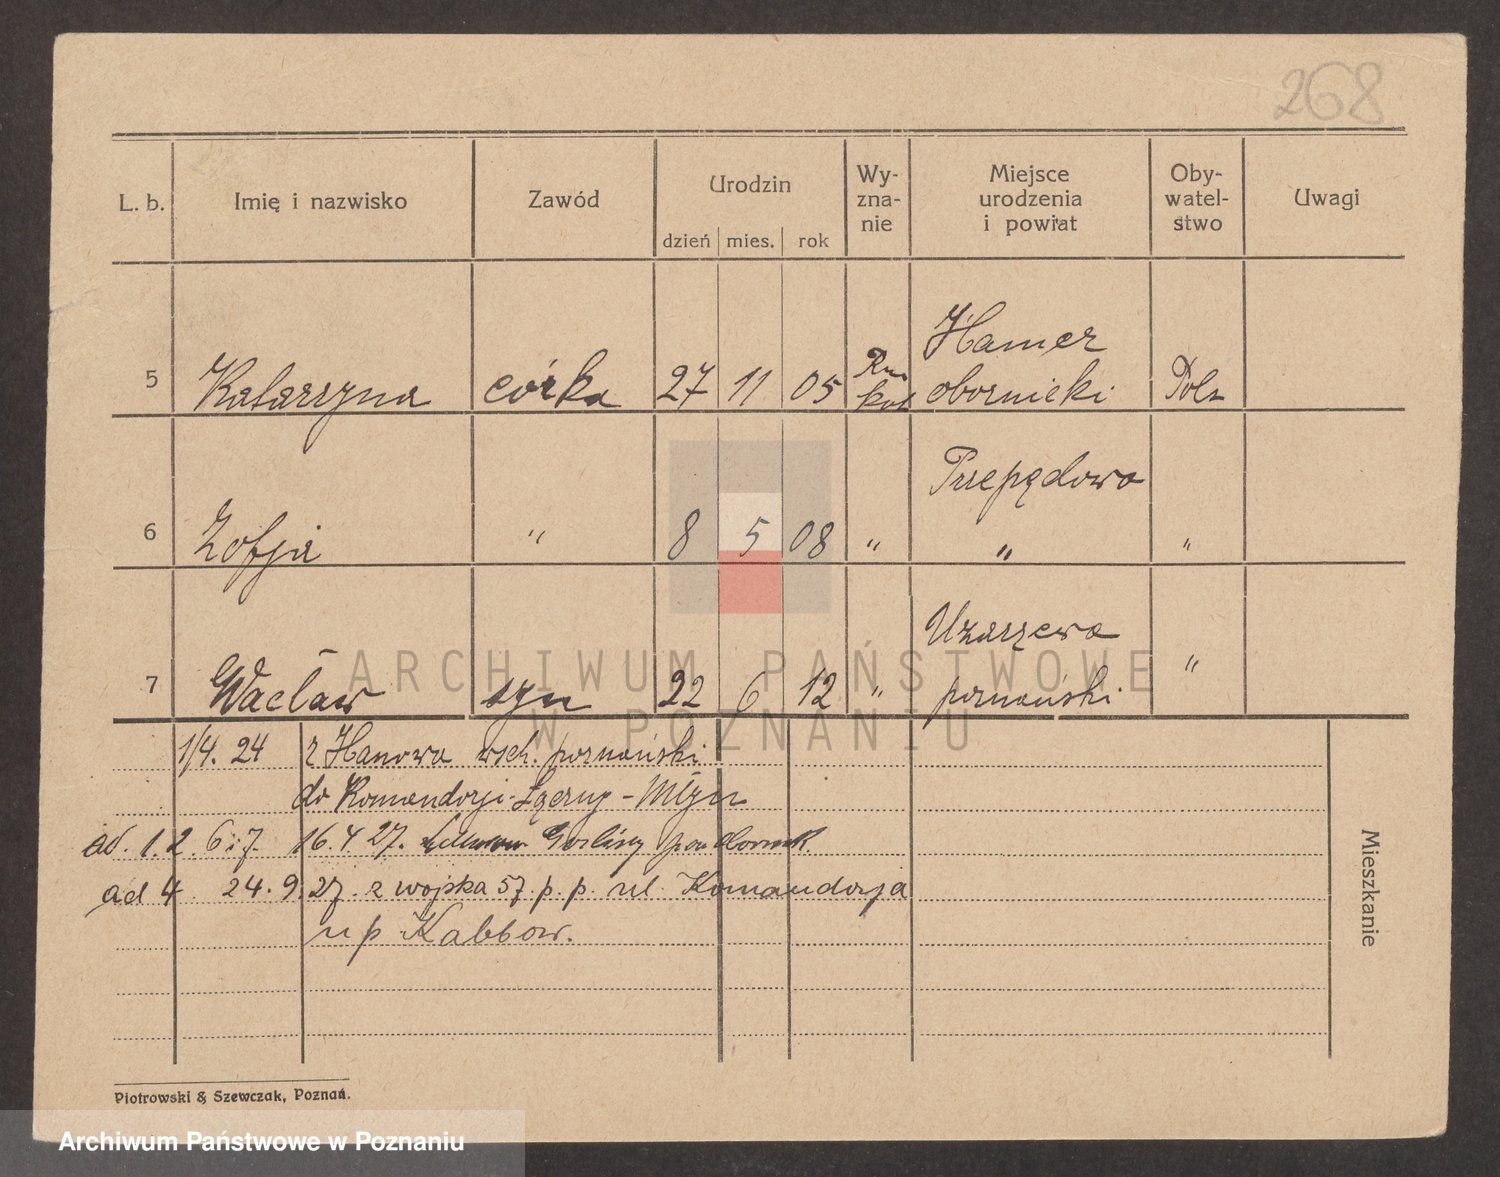 268
L. b.
Imię i nazwisko
Zawód
Urodzin
dzień mies. rok
Wy-
zna-
nie
Miejsce
urodzenia
i powiat
Oby-
watel-
stwo
Uwagi
5 Katarzyna córka 27 11 05 Rm kat Hamer
obornicki Pols
6 Zofja " 8 5 08 " Przepędowo
" "
7 Wacław syn 22 6 12 " Uzarzewo
poznański "
ARCHIWUM PAŃSTWOWE
W POZNANIU
1/4. 24 z Hanowo wsch. poznański
do Komandorji - Młyn
ad. 1. 2. 6 i 7. 16. 4 27. Gosliny pow
ad 4 24. 9. 27. z wojska 57. p. p. ul. Komandorja
u p
Mieszkanie
Piotrowski & Szewczak, Poznań.
Archiwum Państwowe w Poznaniu